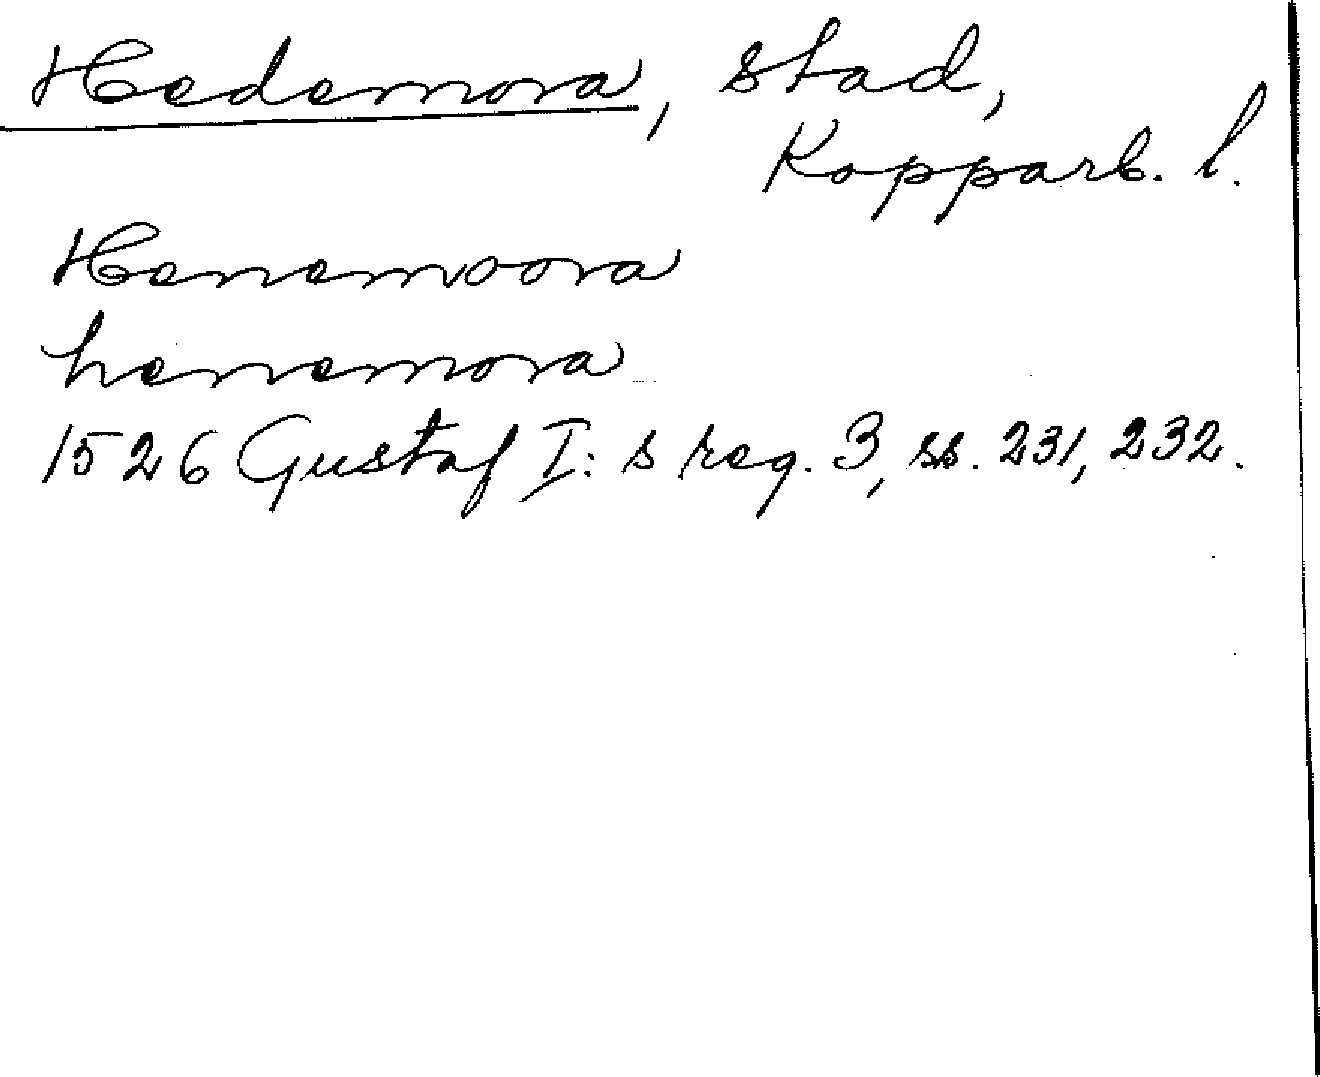 Hedemora, stad,
Kopparb. l.
Henemoora
henemora
1526 Gustaf I:s reg. 3, ss. 231, 232.